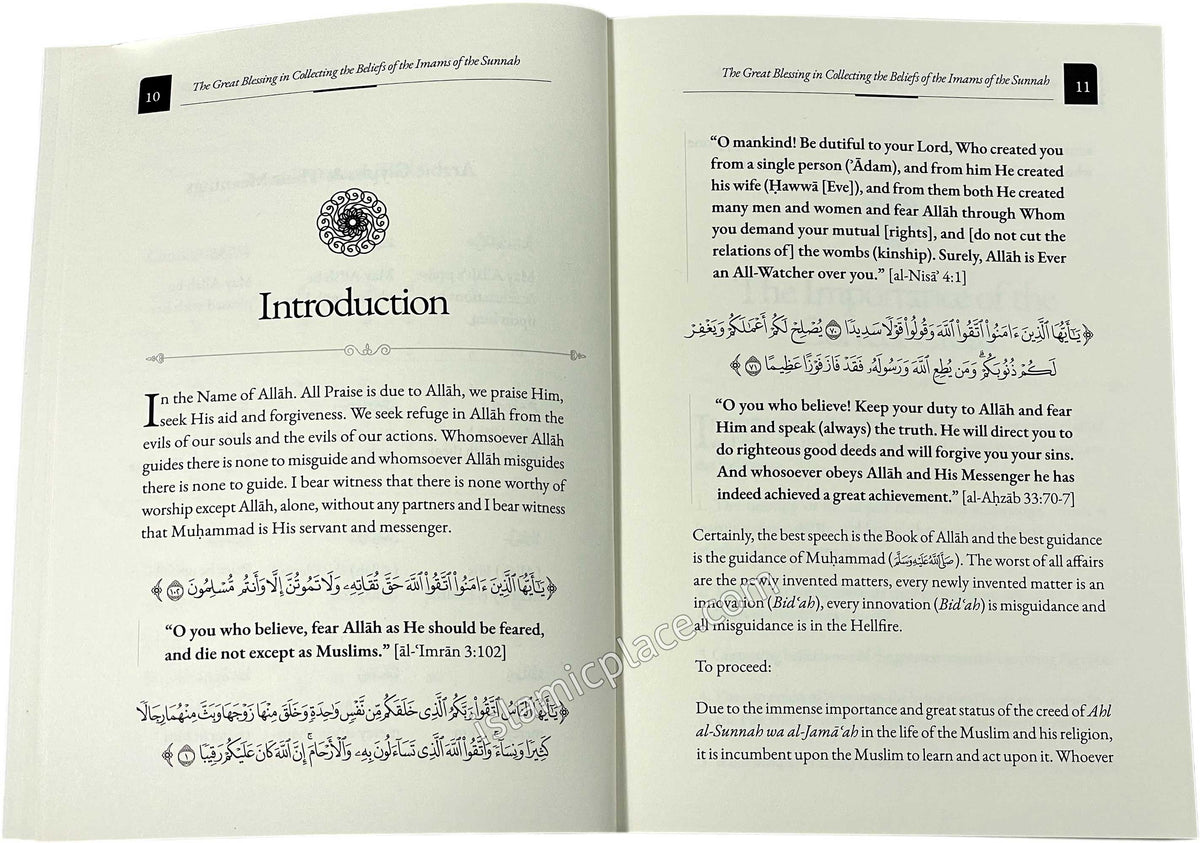 10
The Great Blessing in Collecting the Beliefs of the Imams of the Sunnah
Introduction
In the Name of Allāh. All Praise is due to Allāh, we praise Him,
seek His aid and forgiveness. We seek refuge in Allāh from the
evils of our souls and the evils of our actions. Whomsoever Allāh
guides there is none to misguide and whomsoever Allāh misguides
there is none to guide. I bear witness that there is none worthy of
worship except Allāh, alone, without any partners and I bear witness
that Muḥammad is His servant and messenger.
﴿يَـٰٓأَيُّهَا ٱلَّذِينَ ءَامَنُوا۟ ٱتَّقُوا۟ ٱللَّهَ حَقَّ تُقَاتِهِۦ وَلَا تَمُوتُنَّ إِلَّا وَأَنتُم مُّسْلِمُونَ ١٠٢﴾
“O you who believe, fear Allāh as He should be feared,
and die not except as Muslims.” [āl-ʿImrān 3:102]
﴿يَـٰٓأَيُّهَا ٱلنَّاسُ ٱتَّقُوا۟ رَبَّكُمُ ٱلَّذِى خَلَقَكُم مِّن نَّفْسٍ وَٰحِدَةٍ وَخَلَقَ مِنْهَا زَوْجَهَا وَبَثَّ مِنْهُمَا رِجَالًا
كَثِيرًا وَنِسَآءً ۚ وَٱتَّقُوا۟ ٱللَّهَ ٱلَّذِى تَسَآءَلُونَ بِهِۦ وَٱلْأَرْحَامَ ۚ إِنَّ ٱللَّهَ كَانَ عَلَيْكُمْ رَقِيبًا ١﴾
The Great Blessing in Collecting the Beliefs of the Imams of the Sunnah
11
“O mankind! Be dutiful to your Lord, Who created you
from a single person (ʾĀdam), and from him He created
his wife (Ḥawwā [Eve]), and from them both He created
many men and women and fear Allāh through Whom
you demand your mutual [rights], and [do not cut the
relations of] the wombs (kinship). Surely, Allāh is Ever
an All-Watcher over you.” [al-Nisāʾ 4:1]
﴿يَـٰٓأَيُّهَا ٱلَّذِينَ ءَامَنُوا۟ ٱتَّقُوا۟ ٱللَّهَ وَقُولُوا۟ قَوْلًا سَدِيدًا ٧٠ يُصْلِحْ لَكُمْ أَعْمَـٰلَكُمْ وَيَغْفِرْ
لَكُمْ ذُنُوبَكُمْ ۗ وَمَن يُطِعِ ٱللَّهَ وَرَسُولَهُۥ فَقَدْ فَازَ فَوْزًا عَظِيمًا ٧١﴾
“O you who believe! Keep your duty to Allāh and fear
Him and speak (always) the truth. He will direct you to
do righteous good deeds and will forgive you your sins.
And whosoever obeys Allāh and His Messenger he has
indeed achieved a great achievement.” [al-Aḥzāb 33:70-7]
Certainly, the best speech is the Book of Allāh and the best guidance
is the guidance of Muḥammad (ﷺ). The worst of all affairs
are the newly invented matters, every newly invented matter is an
innovation (Bidʿah), every innovation (Bidʿah) is misguidance and
all misguidance is in the Hellfire.
To proceed:
Due to the immense importance and great status of the creed of Ahl
al-Sunnah wa al-Jamāʿah in the life of the Muslim and his religion,
it is incumbent upon the Muslim to learn and act upon it. Whoever
islamicplace.com